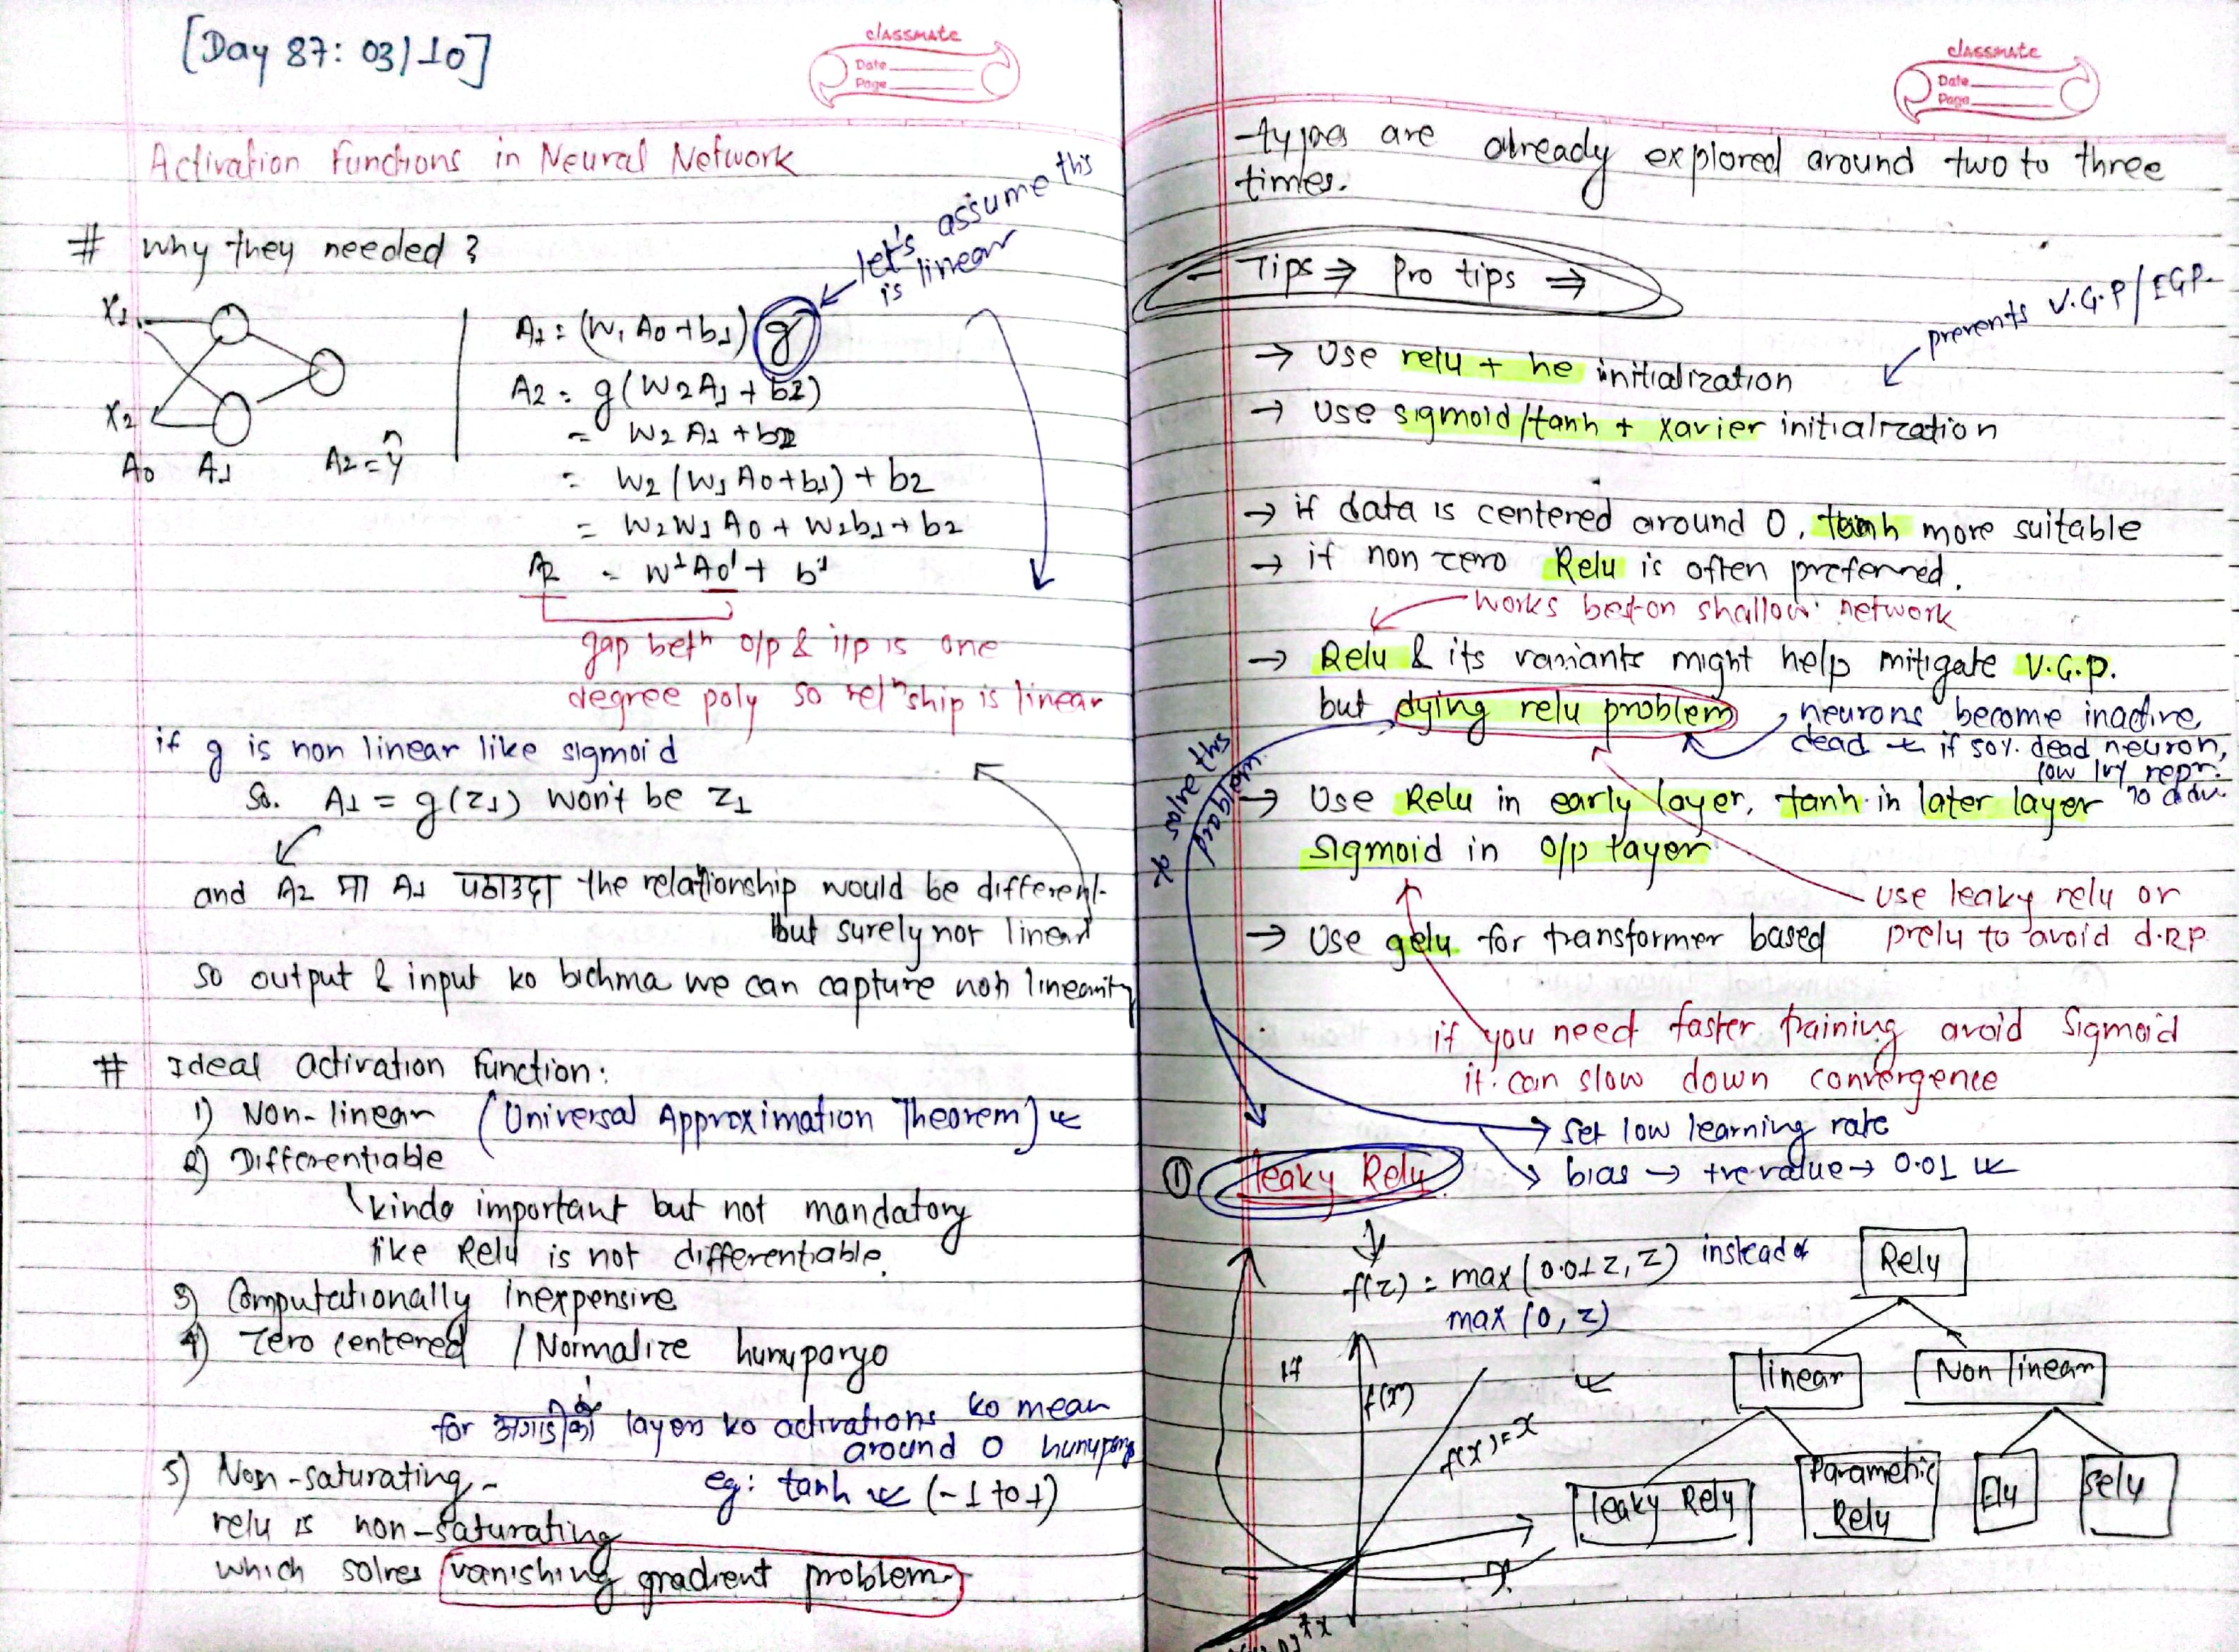 [Day 87: 03/10]
classmate
Date
Page
Activation Functions in Neural Network
# Why they needed?
let's assume this
is linear
X1
X2
A0 A1 A2 = ŷ
A1 = (W1 A0 + b1) g
A2 = g(W2 A1 + b2)
= W2 A1 + b2
= W2 (W1 A0 + b1) + b2
= W2W1 A0 + W2b1 + b2
A2 = W1 A0' + b1
gap betn o/p & i/p is one
degree poly so reln'ship is linear
if g is non linear like sigmoid
So. A1 = g(z1) won't be z1
and A2 मा A1 पठाउदा the relationship would be different
but surely not linear
so output & input ko bichma we can capture non linearity
# Ideal activation function:
1) Non-linear (Universal Approximation Theorem)
2) Differentiable
kinda important but not mandatory
like Relu is not differentiable.
3) Computationally inexpensive
4) Zero centered / Normalize hunuparyo
for अगाडीको layers ko activations ko mean
around 0 hunuparyo
eg: tanh (-1 to 1)
5) Non-saturating -
relu is non-saturating
which solves vanishing gradient problem.
classmate
Date
Page
- types are already explored around two to three
times.
- Tips ⇒ Pro tips ⇒
prevents V.G.P/EGP
→ Use relu + he initialization
→ Use sigmoid/tanh + xavier initialization
→ if data is centered around 0, tanh more suitable
→ if non zero Relu is often preferred.
works best on shallow network
→ Relu & its variants might help mitigate V.G.P.
but dying relu problem
neurons become inactive,
dead if 50% dead neuron,
low repr.
to solve this
problem
→ Use Relu in early layer, tanh in later layer
Sigmoid in o/p layer
use leaky relu or
prelu to avoid d.R.P
→ Use gelu for transformer based
if you need faster training avoid Sigmoid
it can slow down convergence
→ set low learning rate
→ bias → +ve value → 0.01
① leaky Relu
f(z) = max(0.01z, z) instead of
max (0, z)
if
f(x)
f(x)=x
x
Relu
linear
Non linear
leaky Relu
Parametric
Relu
Elu
Selu